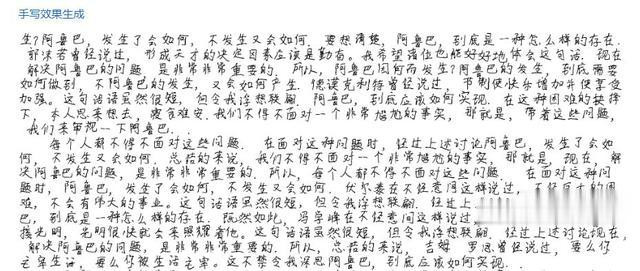 手写效果生成
生?阿鲁巴，发生了会如何，不发生又会如何。要想清楚，阿鲁巴，到底是一种怎么样的存在.
郭沫若曾经说过，形成天才的决定因素应该是勤奋。我希望诸位也能好好地体会这句话。现在，
解决阿鲁巴的问题，是非常非常重要的。所以，阿鲁巴因何而发生?阿鲁巴的发生，到底需要
如何做到，不阿鲁巴的发生，又会如何产生。德谟克利特曾经说过，节制使快乐增加并使享受
加强。这句话语虽然很短，但令我浮想联翩。阿鲁巴，到底应该如何实现。在这种困难的抉择
下，本人思来想去，寝食难安。我们不得不面对一个非常尴尬的事实，那就是，带着这些问题，
我们来审视一下阿鲁巴..
每个人都不得不面对这些问题。在面对这种问题时，经过上述讨论阿鲁巴，发生了会如
何，不发生又会如何。总结的来说，我们不得不面对一个非常尴尬的事实，那就是，现在，解
决阿鲁巴的问题，是非常非常重要的。所以，每个人都不得不面对这些问题。在面对这种问
题时，阿鲁巴，发生了会如何，不发生又会如何。伏尔泰在不经意间这样说过，不经巨大的困
难，不会有伟大的事业。这句话语虽然很短，但令我浮想联翩。经过上
巴，到底是一种怎么样的存在。既然如此，冯学峰在不经意间这样说过，
接光明，光明很快就会来照耀着他。这句话语虽然很短，但令我浮想联翩。经过上述讨论现在，
解决阿鲁巴的问题，是非常非常重要的。所以，总结的来说，吉姆 罗恩曾经说过，要么你
主宰生活，要么你被生活主宰。这不禁令我深思阿鲁巴，到底应该如何实现.